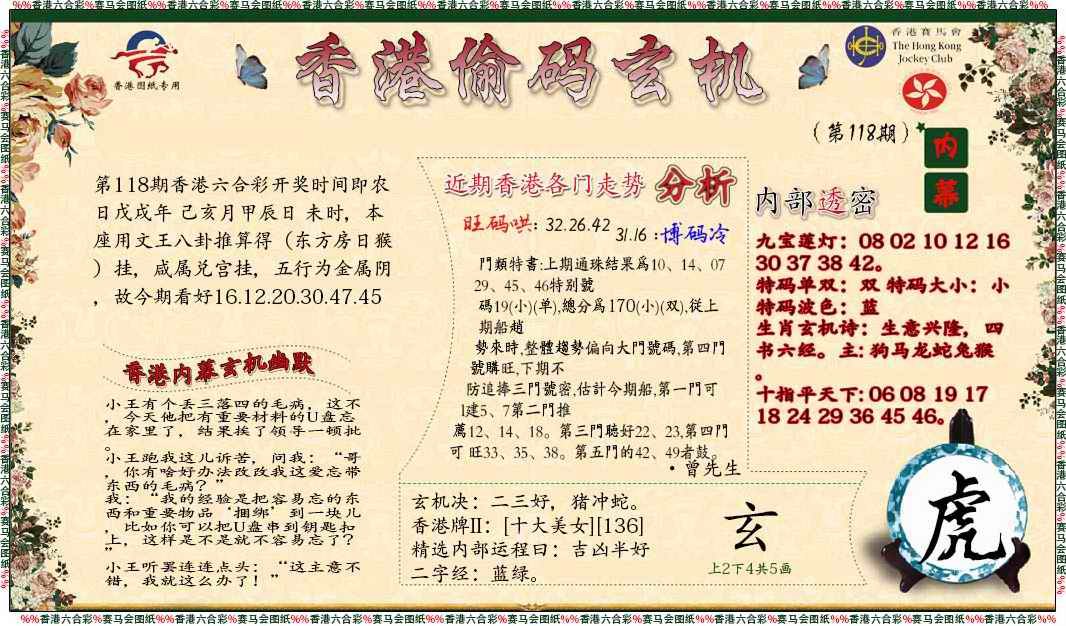 %%香港六合彩%赛马会图纸%%香港六合彩%赛马会图纸%%香港六合彩%赛马会图纸%%香港六合彩%赛马会图纸%%香港六合彩%赛马会图纸%%香港六合彩%赛马会图纸%%香港六合彩%%
香港图纸专用
香港偷码玄机
香港賽馬會
The Hong Kong
Jockey Club
(第118期)
内
幕
第118期香港六合彩开奖时间即农
日戊戌年 己亥月甲辰日 未时，本
座用文王八卦推算得（东方房日猴
）挂，咸属兑宫挂，五行为金属阴
，故今期看好16.12.20.30.47.45
香港内幕玄机幽默
小王有个丢三落四的毛病，这不
，今天他把有重要材料的U盘忘
在家里了，结果挨了领导一顿批
。
小王跑我这儿诉苦，问我：“哥
，你有啥好办法改改我这爱忘带
东西的毛病？”
我：“我的经验是把容易忘的东
西和重要物品‘捆绑’到一块儿
，比如你可以把U盘串到钥匙扣
上，这样是不是就不容易忘了？
”
小王听罢连连点头：“这主意不
错，我就这么办了！”
近期香港各门走势 分析
旺码哄: 32.26.42
31.16 :博码冷
門類特書:上期通珠結果爲10、14、07
29、45、46特别號
碼19(小)(单),總分爲170(小)(双),從上
期船趙
勢來時,整體趨勢偏向大門號碼,第四門
號購旺,下期不
防追捧三門號密,估計今期船,第一門可
1建5、7第二門推
薦12、14、18。第三門聽好22、23,第四門
可 旺33、35、38。第五門的42、49者鼓。
·曾先生
玄机决：二三好，猪冲蛇。
香港牌II：[十大美女][136]
精选内部运程曰：吉凶半好
二字经：蓝绿。
玄
上2下4共5画
内部透密
九宝莲灯：08 02 10 12 16
30 37 38 42。
特码单双：双 特码大小：小
特码波色：蓝
生肖玄机诗：生意兴隆，四
书六经。主: 狗马龙蛇兔猴
。
十指平天下: 06 08 19 17
18 24 29 36 45 46。
虎
%%香港六合彩%赛马会图纸%%香港六合彩%赛马会图纸%%香港六合彩%赛马会图纸%%香港六合彩%赛马会图纸%%香港六合彩%赛马会图纸%%香港六合彩%赛马会图纸%%香港六合彩%%